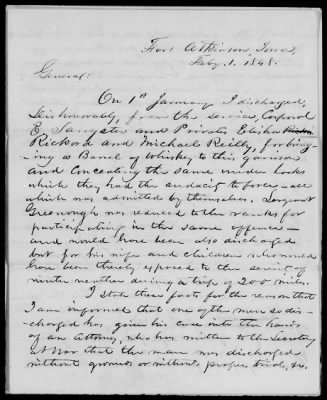 Fort Atkinson, Iowa,
Feby. 1. 1848.
General:
On 1st January I discharged,
dishonorably, from the service, Corporal
E. Sangster and Privates Elisha
Rickord and Michael Reilly, for bring-
ing a Barrel of Whiskey to this garrison
and Concealing the same under locks
which they had the audacity to force - all
which was admitted by themselves. Sergeant
Greenough was reduced to the ranks for
participating in the same offence -
and would have been also discharged
but for his wife and children who would
have been thereby exposed to the severity of
winter weather during a trip of 200 miles.
I state these facts for the reason that
I am informed that one of the men so dis-
charged has given his case into the hands
of an Attorney, who has written to the Secretary
of War that the man was discharged
without grounds or without proper trial, &c.